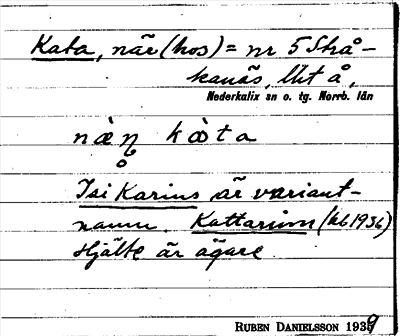 Kata, när (hos) = nr 5 Skå-
kanäs, litt å,
Nederkalix sn o. tg. Norrb. län
Isi Karins är variant-
namn. Kattarivm (kb 1936)
Hjälte är ägare.
RUBEN DANIELSSON 1939